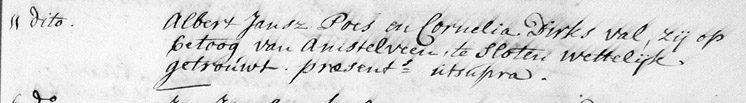 11 dito. Albert Jansz Poes en Cornelia Dirks val, zij op
betoog van Amstelveen, te Sloten wettelijk
getrouwt. presents utsupra.